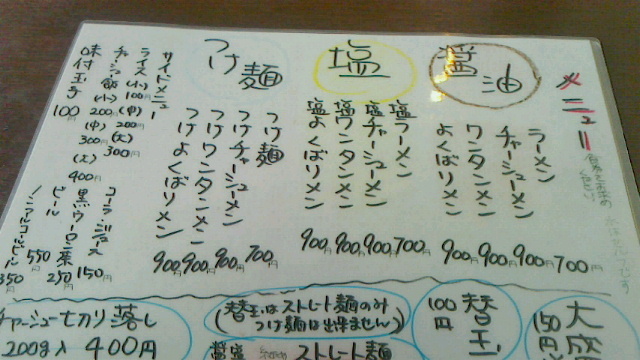 メニュー
醤油
ラーメン 700円
チャーシューメン 900円
ワンタンメン 900円
よくばりメン 900円
塩
塩ラーメン 700円
塩チャーシューメン 900円
塩ワンタンメン 900円
塩よくばりメン 900円
つけ麺
つけ麺 700円
つけチャーシューメン 900円
つけワンタンメン 900円
つけよくばりメン 900円
サイドメニュー
ライス (小) 100円
(中) 200円
(大) 300円
チャーシュー飯 (小) 200円
(中) 300円
(大) 400円
味付玉子 100円
コーラ・ジュース 150円
黒ウーロン茶 250円
ビール 550円
ノンアルコールビール 350円
大盛 150円
替玉 100円
(替玉はストレート麺のみ
つけ麺は出来ません)
ストレート麺
チャーシュー切り落し
200g入 400円